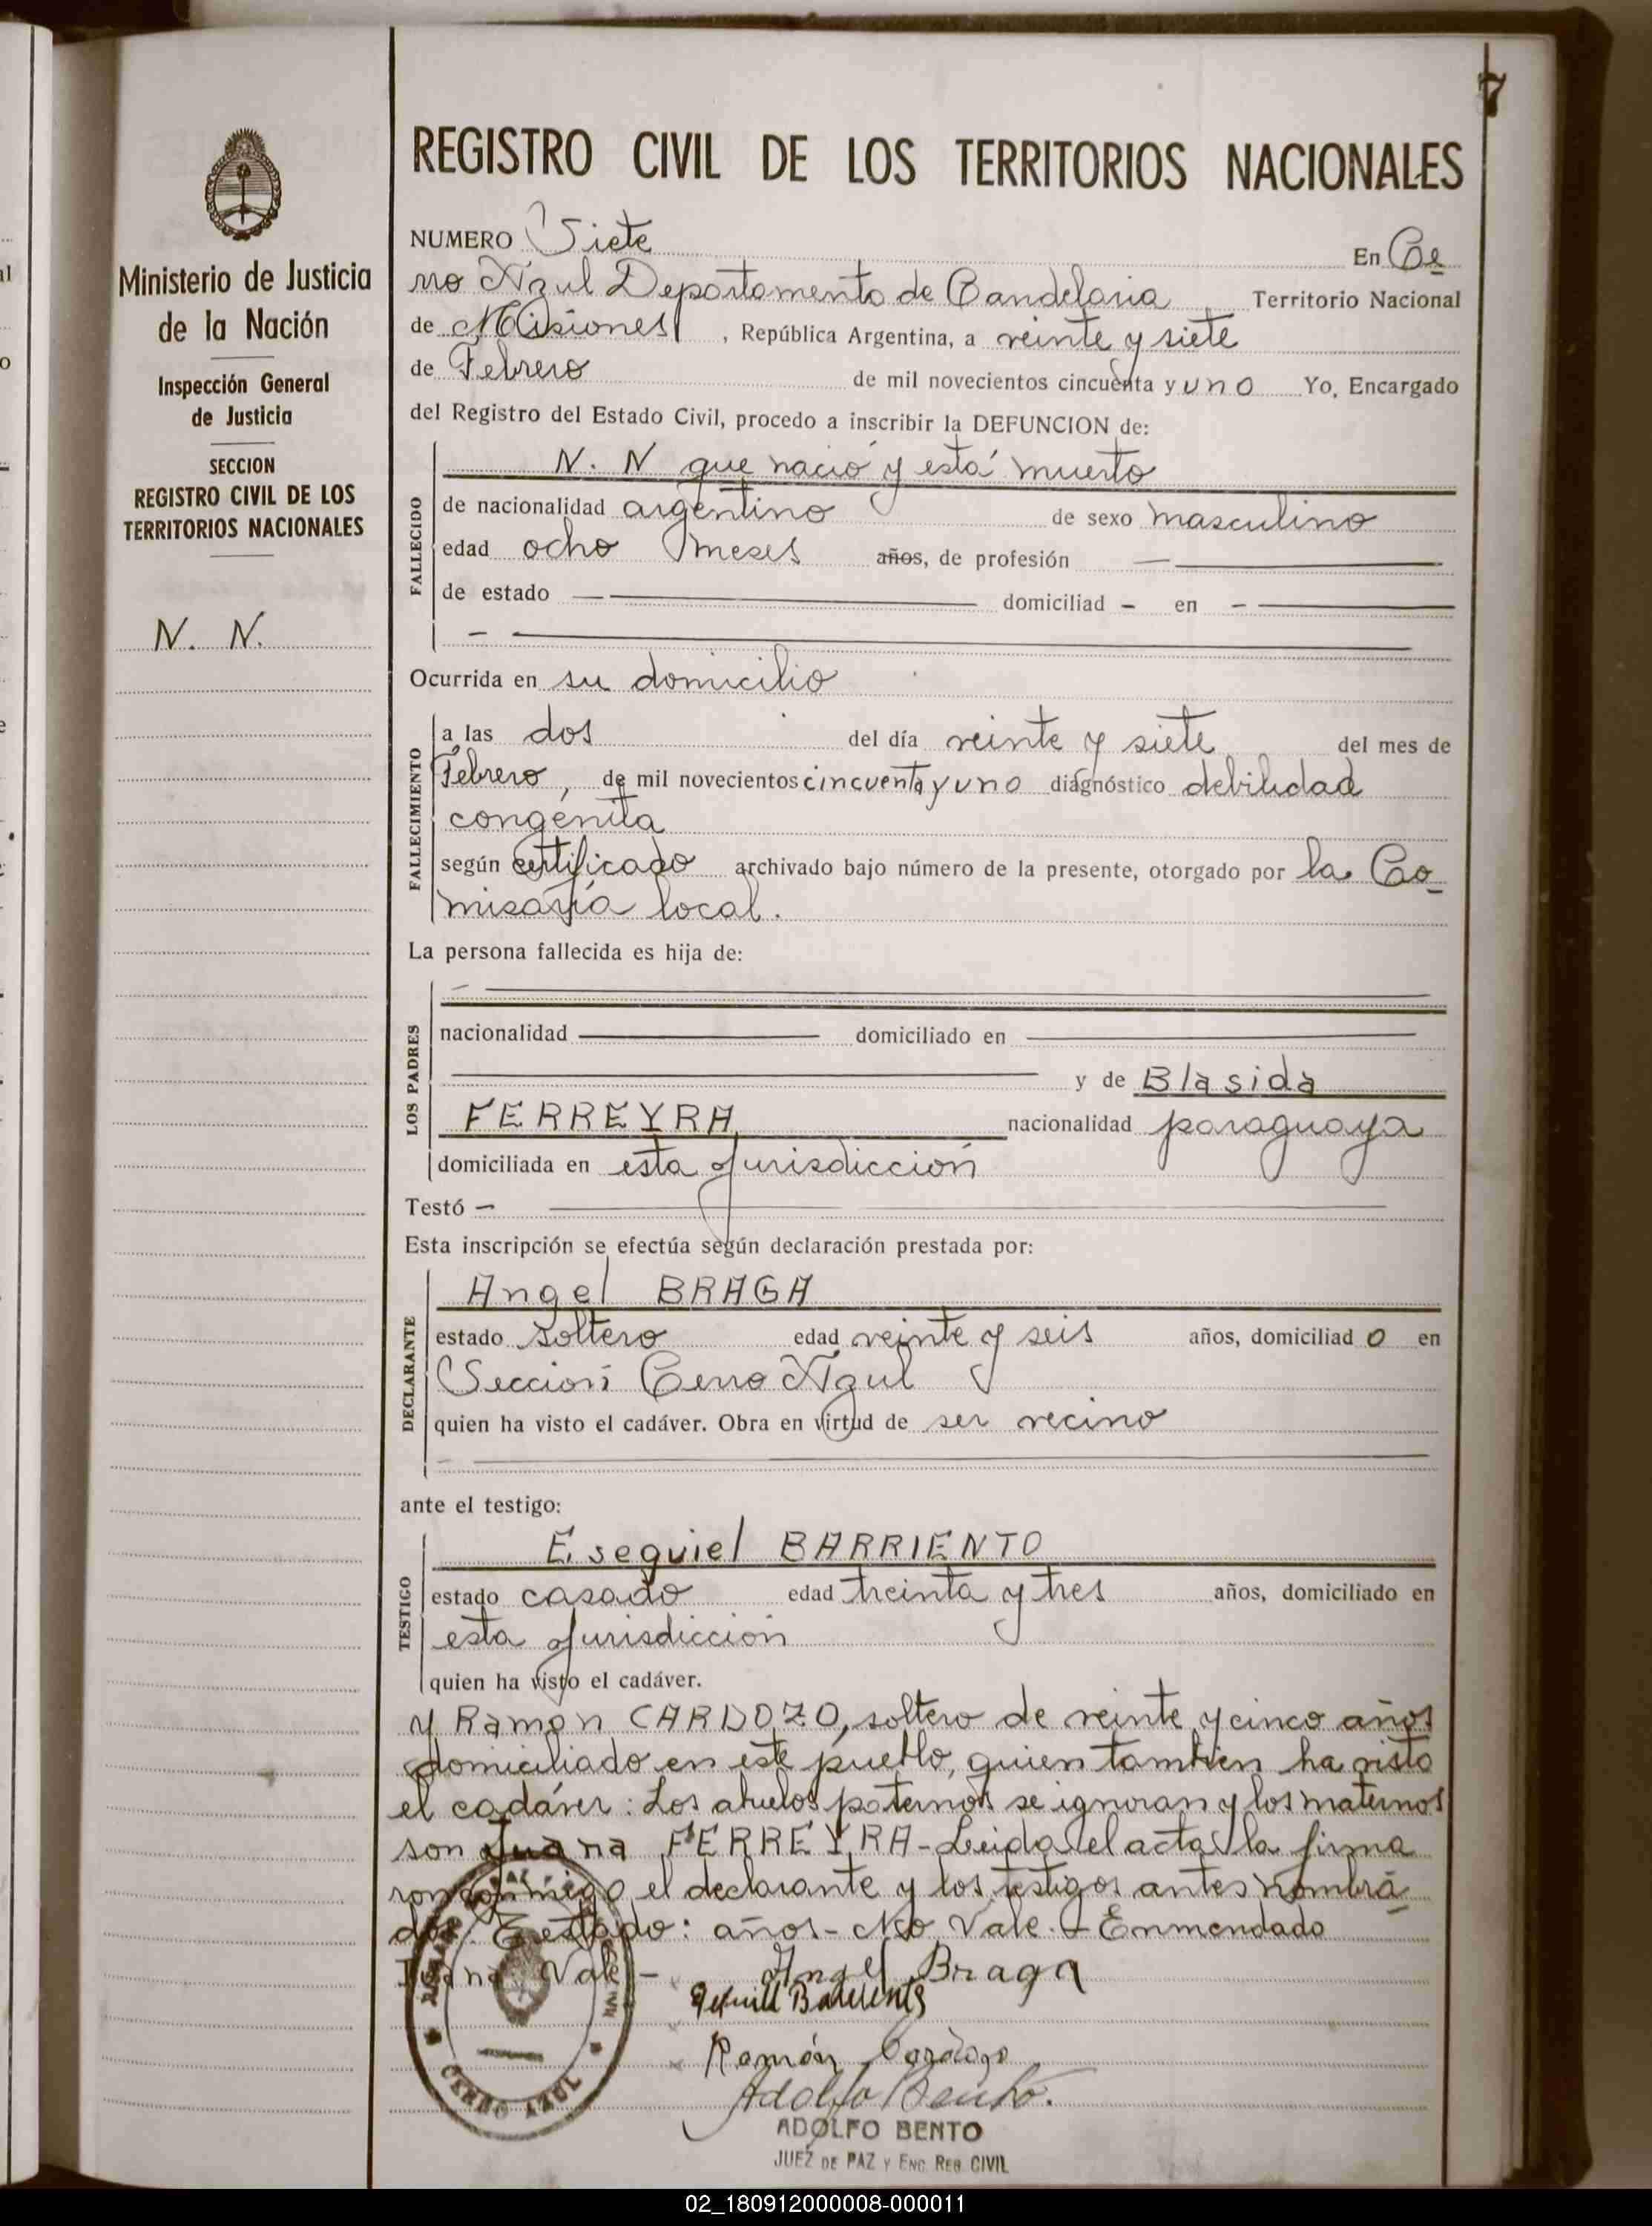 7
REGISTRO CIVIL DE LOS TERRITORIOS NACIONALES
Ministerio de Justicia
de la Nación
Inspección General
de Justicia
SECCION
REGISTRO CIVIL DE LOS
TERRITORIOS NACIONALES
N. N.
NUMERO Siete En Ce
rro Azul Departamento de Candelaria Territorio Nacional
de Misiones, República Argentina, a veinte y siete
de Febrero de mil novecientos cincuenta y uno Yo, Encargado
del Registro del Estado Civil, procedo a inscribir la DEFUNCION de:
FALLECIDO
N. N que nació y está muerto
de nacionalidad argentino de sexo masculino
edad ocho meses años, de profesión —
de estado — domiciliad - en -
Ocurrida en su domicilio
FALLECIMIENTO
a las dos del día veinte y siete del mes de
Febrero, de mil novecientos cincuenta y uno diagnóstico debilidad
congénita
según certificado archivado bajo número de la presente, otorgado por la Co-
misaría local.
La persona fallecida es hija de:
LOS PADRES
nacionalidad — domiciliado en —
y de Blasida
FERREYRA nacionalidad paraguaya
domiciliada en esta Jurisdicción
Testó —
Esta inscripción se efectúa según declaración prestada por:
DECLARANTE
Angel BRAGA
estado soltero edad veinte y seis años, domiciliad o en
Sección Cerro Azul
quien ha visto el cadáver. Obra en virtud de ser vecino
ante el testigo:
TESTIGO
Esequiel BARRIENTO
estado casado edad treinta y tres años, domiciliado en
esta Jurisdicción
quien ha visto el cadáver.
y Ramon CARDOZO, soltero de veinte y cinco años
domiciliado en este pueblo, quien tambien ha visto
el cadáver: Los abuelos paternos se ignoran y los maternos
son Juana FERREYRA - Leida el acta la firma
ron conmigo el declarante y los testigos antes nombra-
dos. Testado: años - No Vale. - Enmendado
Juana Vale -
Angel Braga
Barriento
Ramón Cardozo
Adolfo Bento.
ADOLFO BENTO
JUEZ DE PAZ Y ENC. REG. CIVIL
CERRO AZUL
02_180912000008-000011